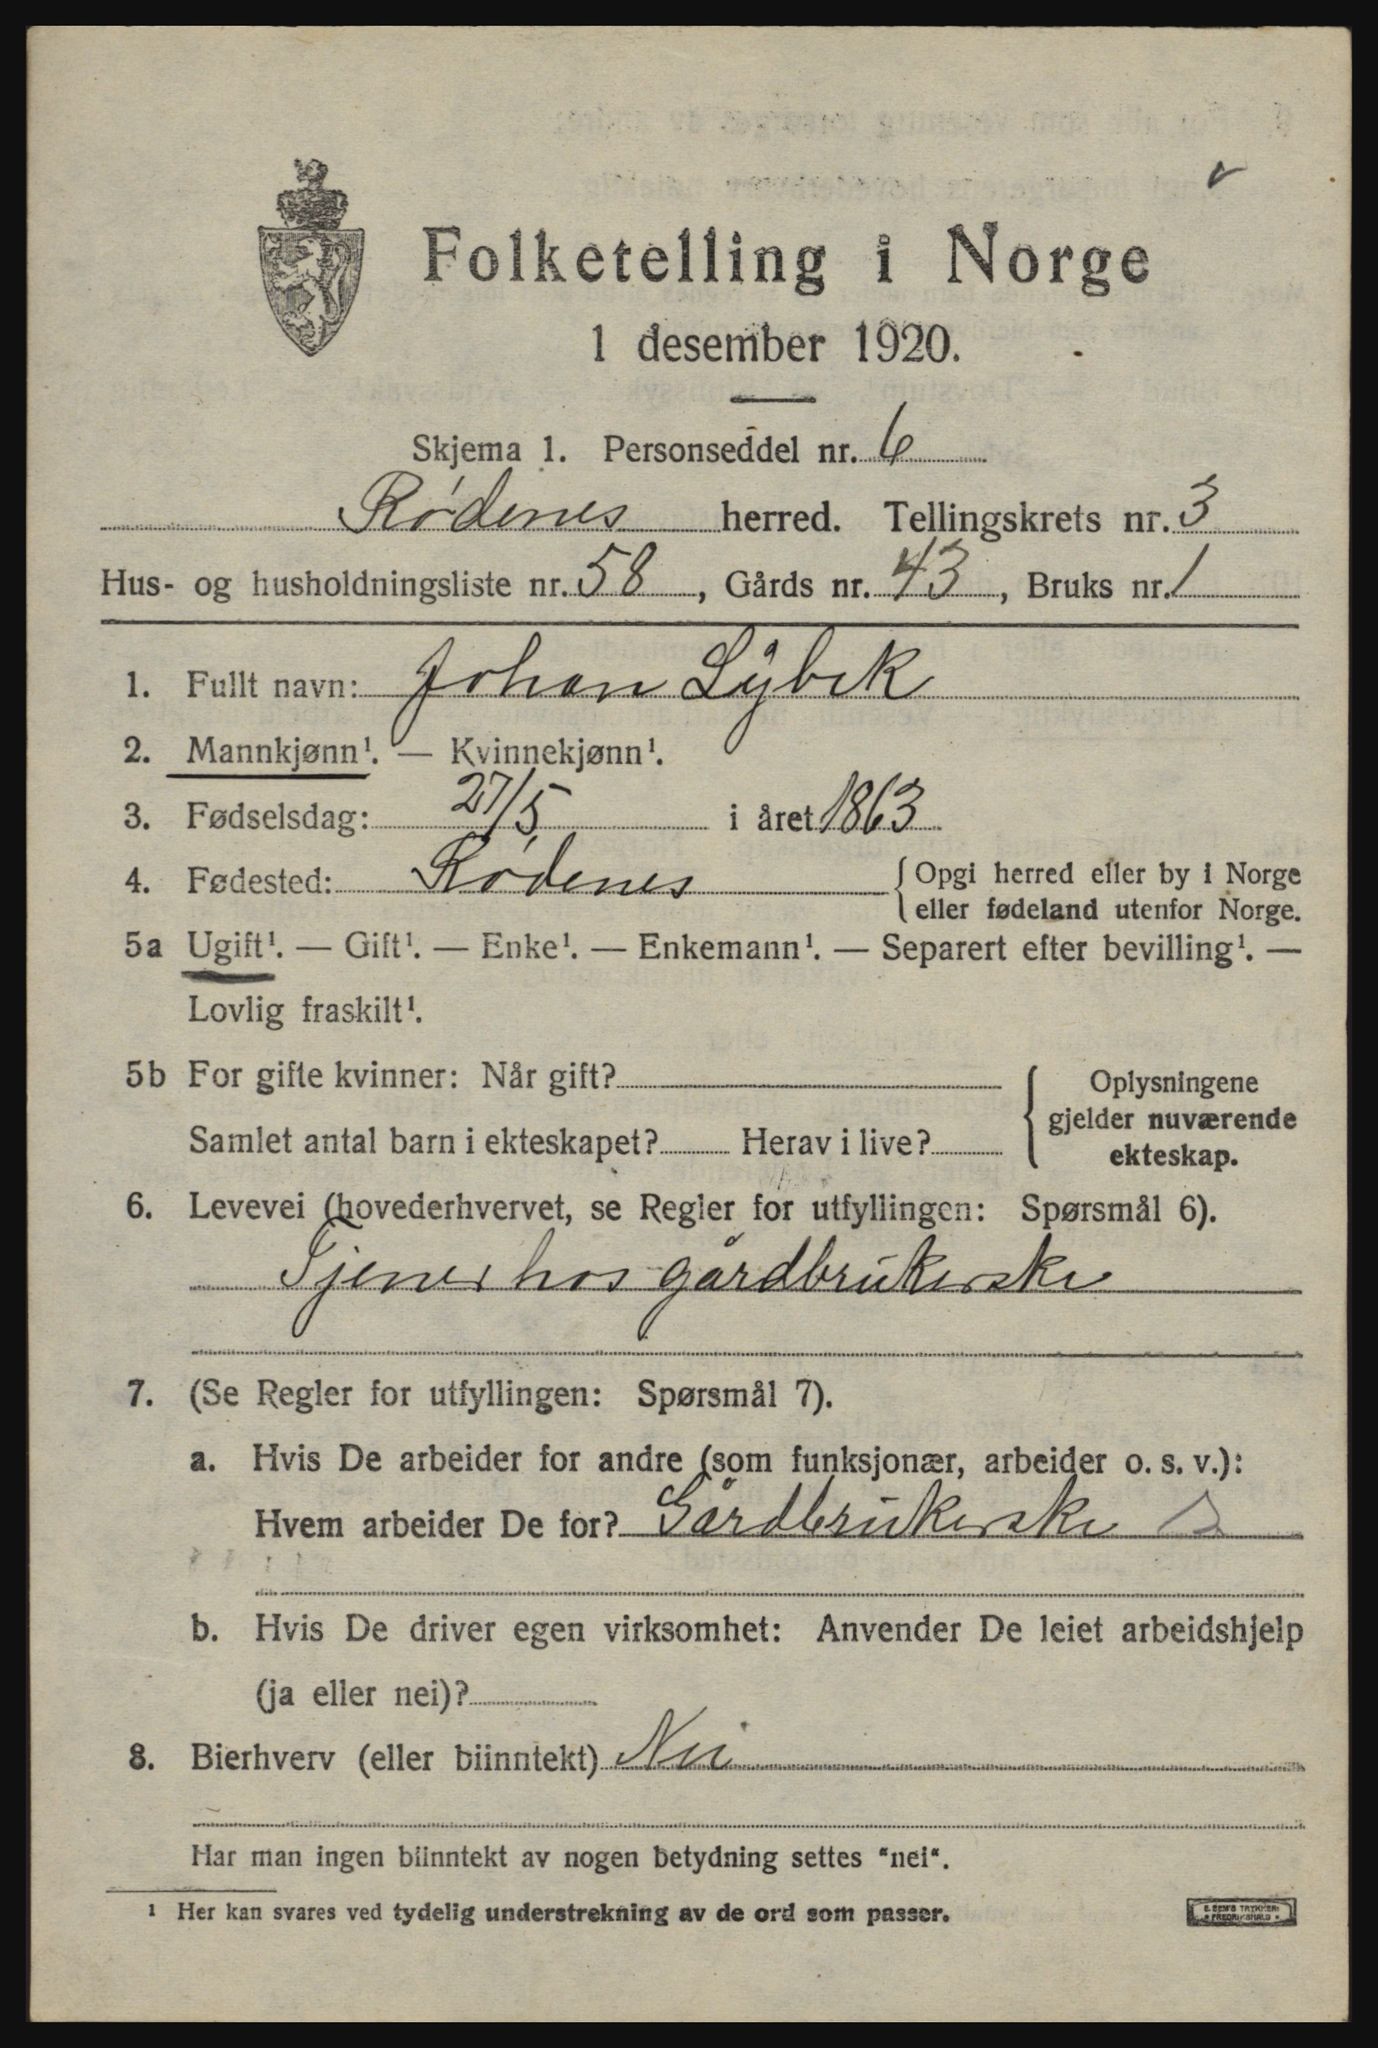 Folketelling i Norge
1 desember 1920.
Skjema 1. Personseddel nr. 6
Rødenes herred. Tellingskrets nr. 3
Hus- og husholdningsliste nr. 58, Gårds nr. 43, Bruks nr. 1
1. Fullt navn: Johan Lybek
2. Mannkjønn¹. — Kvinnekjønn¹.
3. Fødselsdag: 27/5 i året 1863
4. Fødested: Rødenes { Opgi herred eller by i Norge
eller fødeland utenfor Norge.
5a Ugift¹. — Gift¹. — Enke¹. — Enkemann¹. — Separert efter bevilling¹. —
Lovlig fraskilt¹.
5b For gifte kvinner: Når gift?
Samlet antal barn i ekteskapet? Herav i live?
{ Oplysningene
gjelder nuværende
ekteskap.
6. Levevei (hovederhvervet, se Regler for utfyllingen: Spørsmål 6).
Tjener hos gårdbrukerske
7. (Se Regler for utfyllingen: Spørsmål 7).
a. Hvis De arbeider for andre (som funksjonær, arbeider o. s. v.):
Hvem arbeider De for? Gårdbrukerske
b. Hvis De driver egen virksomhet: Anvender De leiet arbeidshjelp
(ja eller nei)?
8. Bierhverv (eller biinntekt) Nei
Har man ingen biinntekt av nogen betydning settes "nei".
¹ Her kan svares ved tydelig understrekning av de ord som passer.